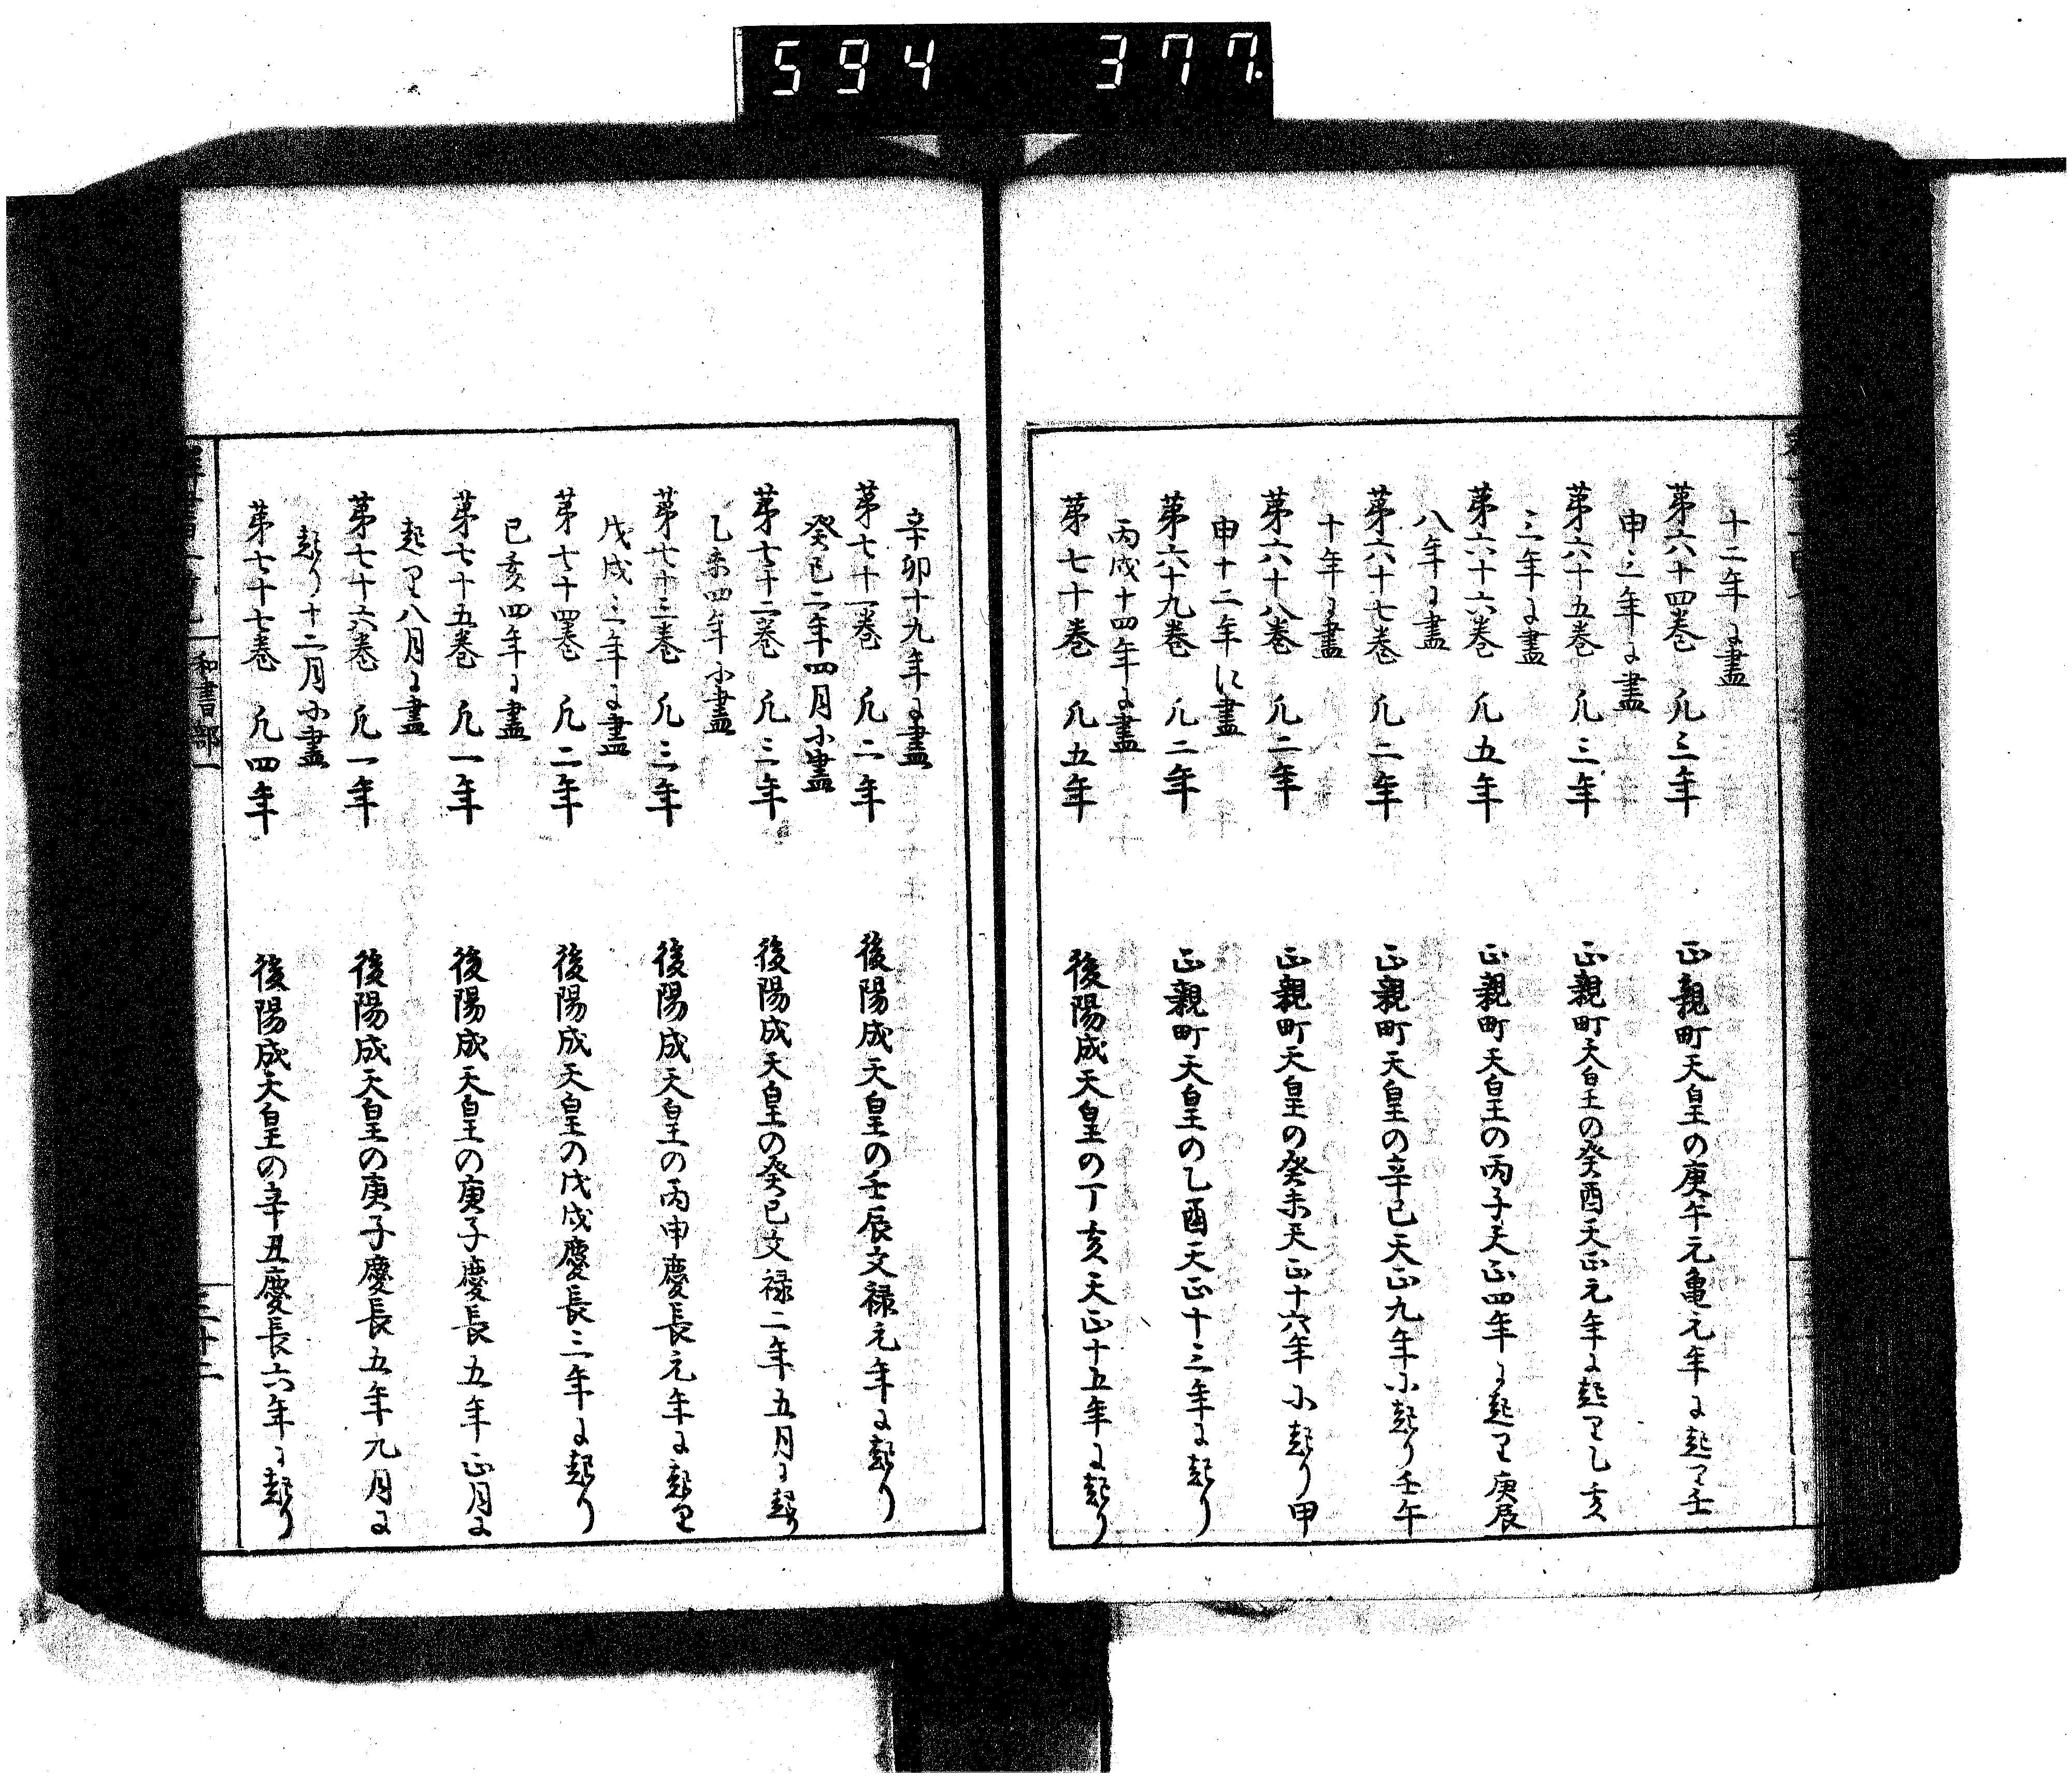 594 377
十二年に盡
第六十四巻 凢三年 正親町天皇の庚午元亀元年に起り壬
申三年に盡
第六十五巻 凢三年 正親町天皇の癸酉天正元年に起り乙亥
三年に盡
第六十六巻 凢五年 正親町天皇の丙子天正四年に起り庚辰
八年に盡
第六十七巻 凢二年 正親町天皇の辛巳天正九年に起り壬午
十年に盡
第六十八巻 凢二年 正親町天皇の癸未天正十六年に起り甲
申十二年に盡
第六十九巻 凢二年 正親町天皇の乙酉天正十三年に起り
丙戌十四年に盡
第七十巻 凢五年 後陽成天皇の丁亥天正十五年に起り
辛卯十九年に盡
第七十一巻 凢二年 後陽成天皇の壬辰文禄元年に起り
癸巳二年四月に盡
第七十二巻 凢三年 後陽成天皇の癸巳文禄二年五月に起り
乙未四年に盡
第七十三巻 凢三年 後陽成天皇の丙申慶長元年に起り
戊戌三年に盡
第七十四巻 凢二年 後陽成天皇の戊戌慶長三年に起り
己亥四年に盡
第七十五巻 凢一年 後陽成天皇の庚子慶長五年正月に
起り八月に盡
第七十六巻 凢一年 後陽成天皇の庚子慶長五年九月に
起り十二月に盡
第七十七巻 凢四年 後陽成天皇の辛丑慶長六年に起り
和書部一 三十二